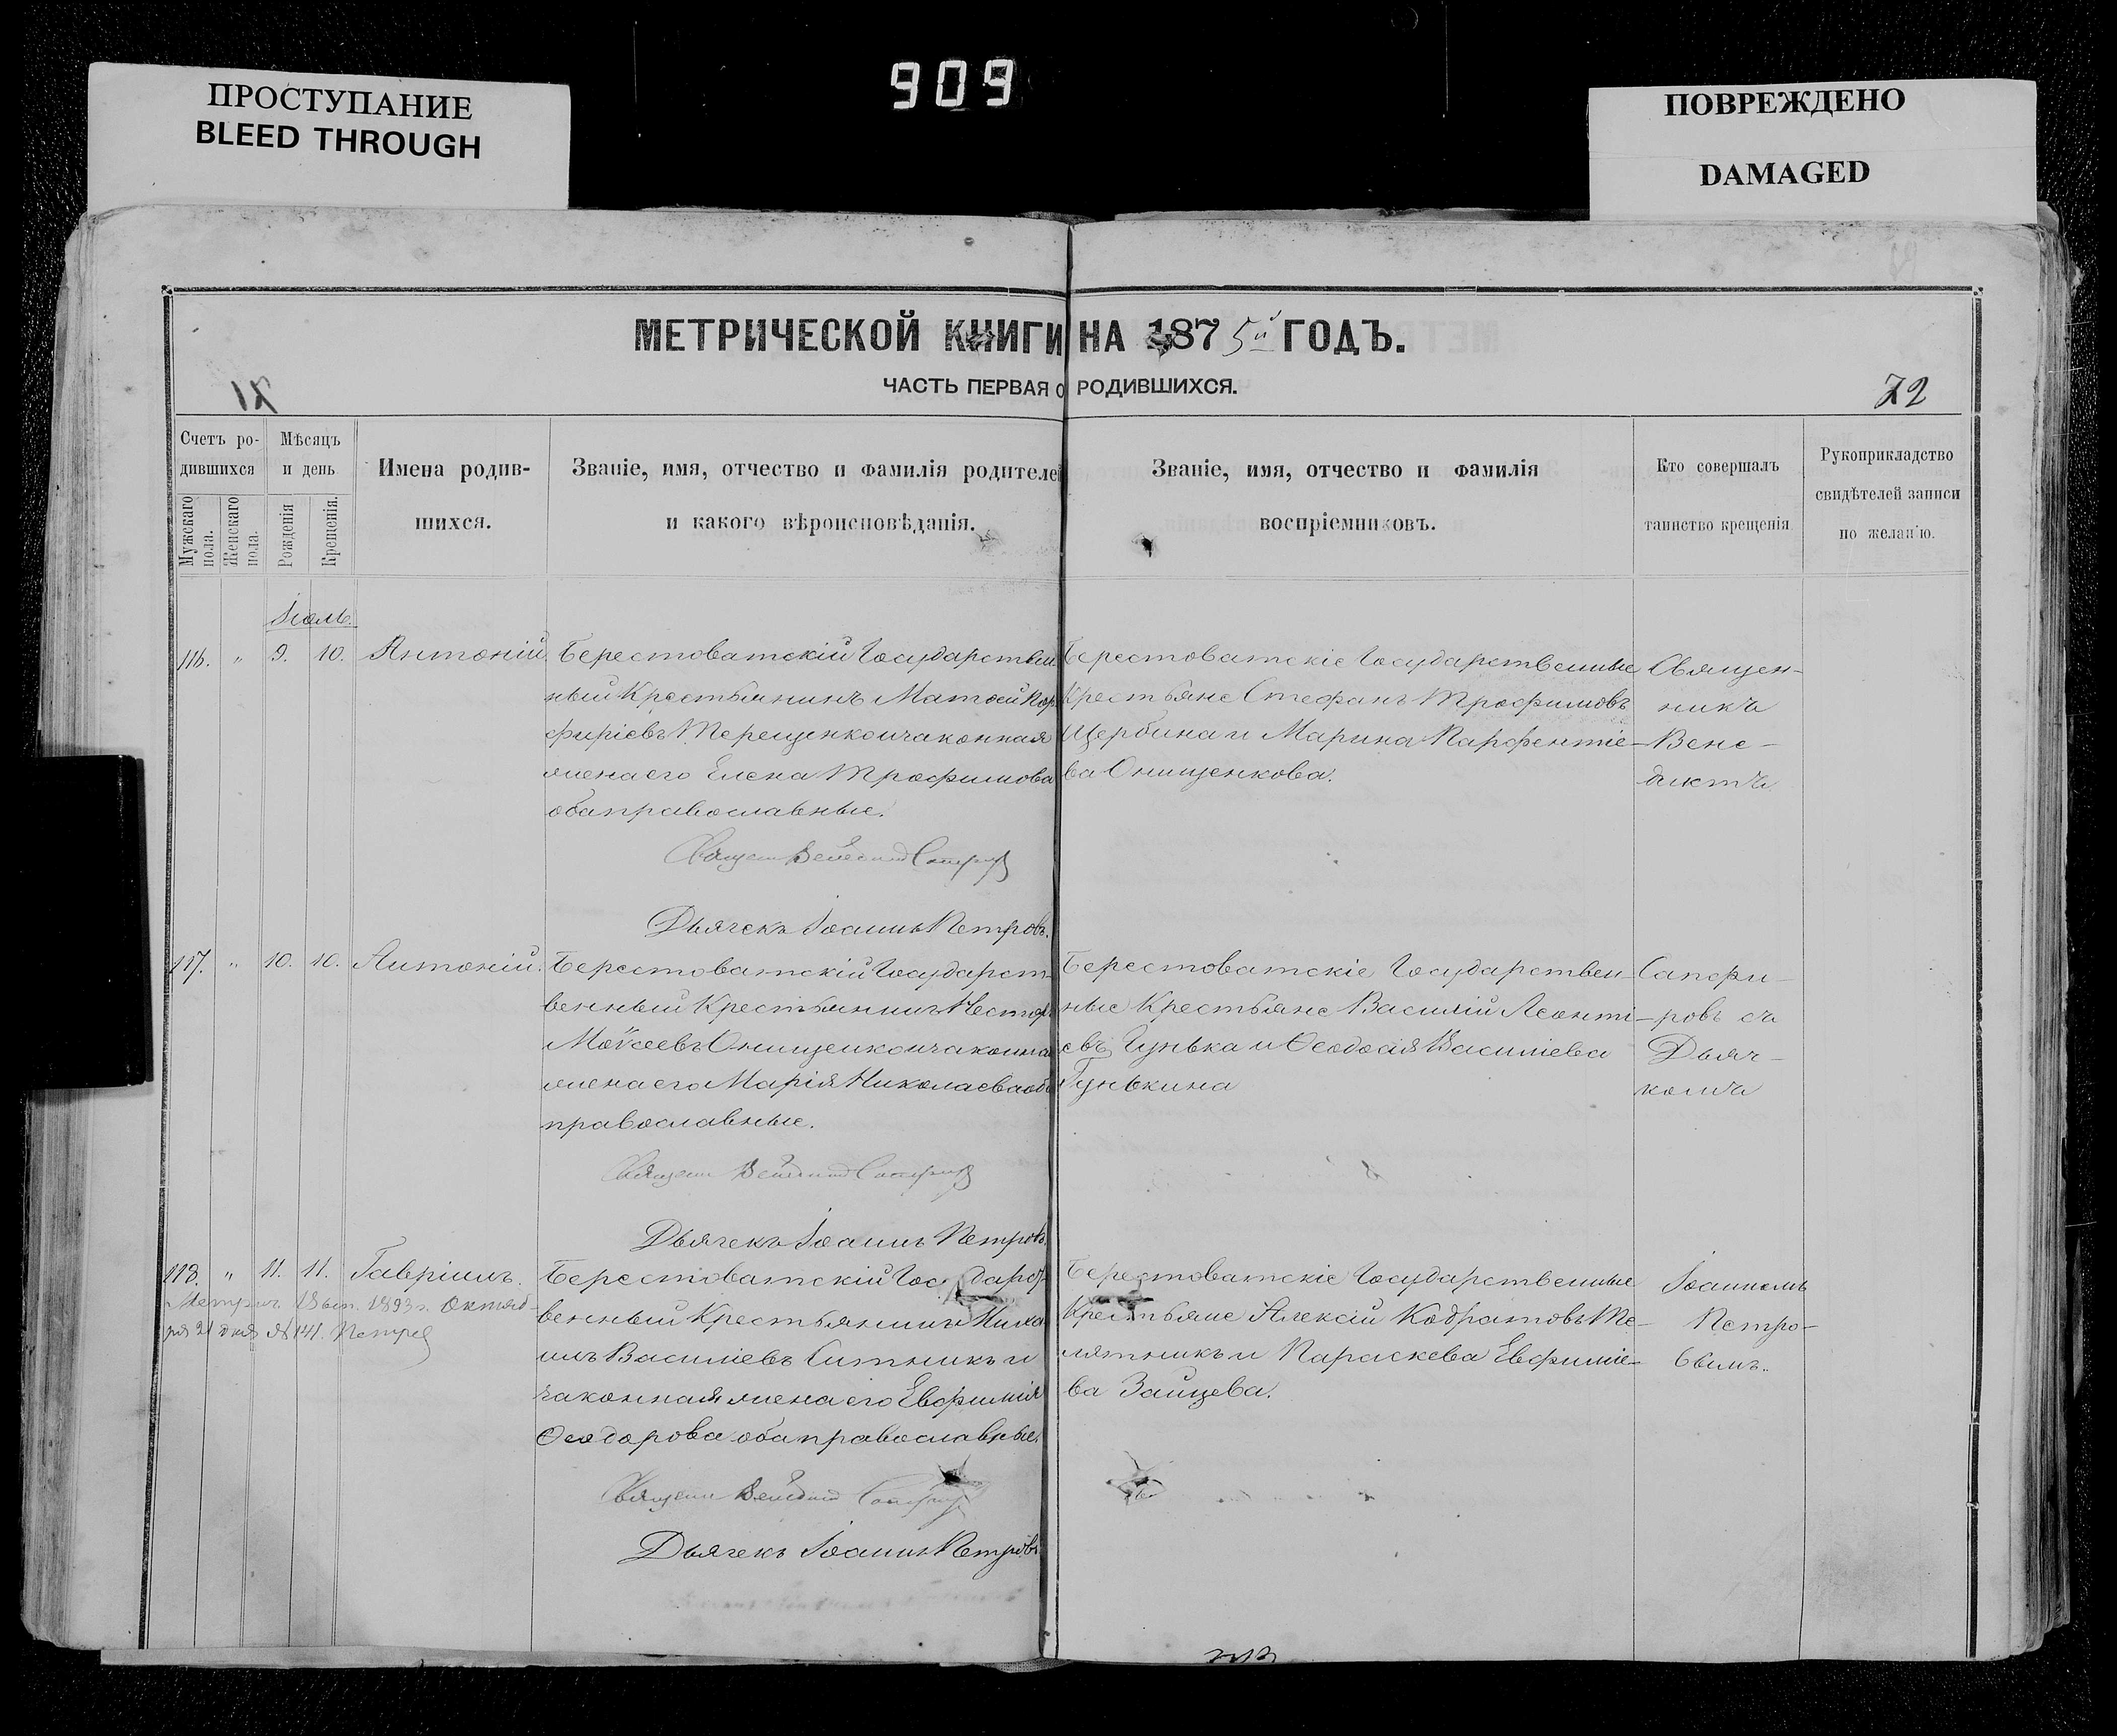 909
ПРОСТУПАНИЕ
BLEED THROUGH
ПОВРЕЖДЕНО
DAMAGED
МЕТРИЧЕСКОЙ КНИГИ НА 1875й ГОДЪ.
ЧАСТЬ ПЕРВАЯ О РОДИВШИХСЯ.
72
Счетъ ро-
дившихся
Мужскаго пола.
Женскаго пола.
Мѣсяцъ
и день
Рожденія
Крещенія.
Имена родив-
шихся.
Званіе, имя, отчество и фамилія родителей
и какого вѣроисповѣданія.
Званіе, имя, отчество и фамилія
воспріемниковъ.
Кто совершалъ
таинство крещенія
Рукоприкладство
свидѣтелей записи
по желанію.
Іюль.
116. " 9. 10. Антоній.
Берестоватскій Государствен
ный Крестьянинъ Матѳей Пор
фиріевъ Терещенко и законная
жена его Елена Трофимова
оба православные.
Дьячекъ Іоаннъ Петровъ.
Берестоватскіе Государственные
Крестьяне Стефанъ Трофимовъ
Щербина и Марина Парфентіе-
ва Онищенкова.
Священ-
никъ
Вене-
диктъ
117. " 10. 10. Антоній.
Берестоватскій Государст-
венный Крестьянинъ Несторъ
Моѵсеевъ Онищенко и законная
жена его Марія Николаева оба
православные.
Дьячекъ Іоаннъ Петровъ.
Берестоватскіе Государствен-
ные Крестьяне Василій Леонті-
евъ Гунька и Ѳеодосія Василіева
Гунькина
Сапфи-
ровъ съ
Дьяч-
комъ
118. " 11. 11. Гавріилъ.
Метрич. вып. 1893 г. Октяб-
ря 21 дня № 141. Петров
Берестоватскій Государст
венный Крестьянинъ Миха
илъ Василіевъ Ситникъ и
законная жена его Евфимія
Ѳеодорова оба православные.
Дьячекъ Іоаннъ Петровъ
Берестоватскіе Государственные
Крестьяне Алексій Кодратовъ Те-
лятникъ и Параскева Евфиміе-
ва Зайцева.
Іоанномъ
Петро-
вымъ.